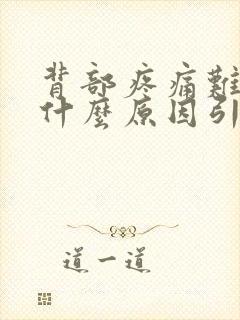 背部疼痛難
什麼原因引
道一道